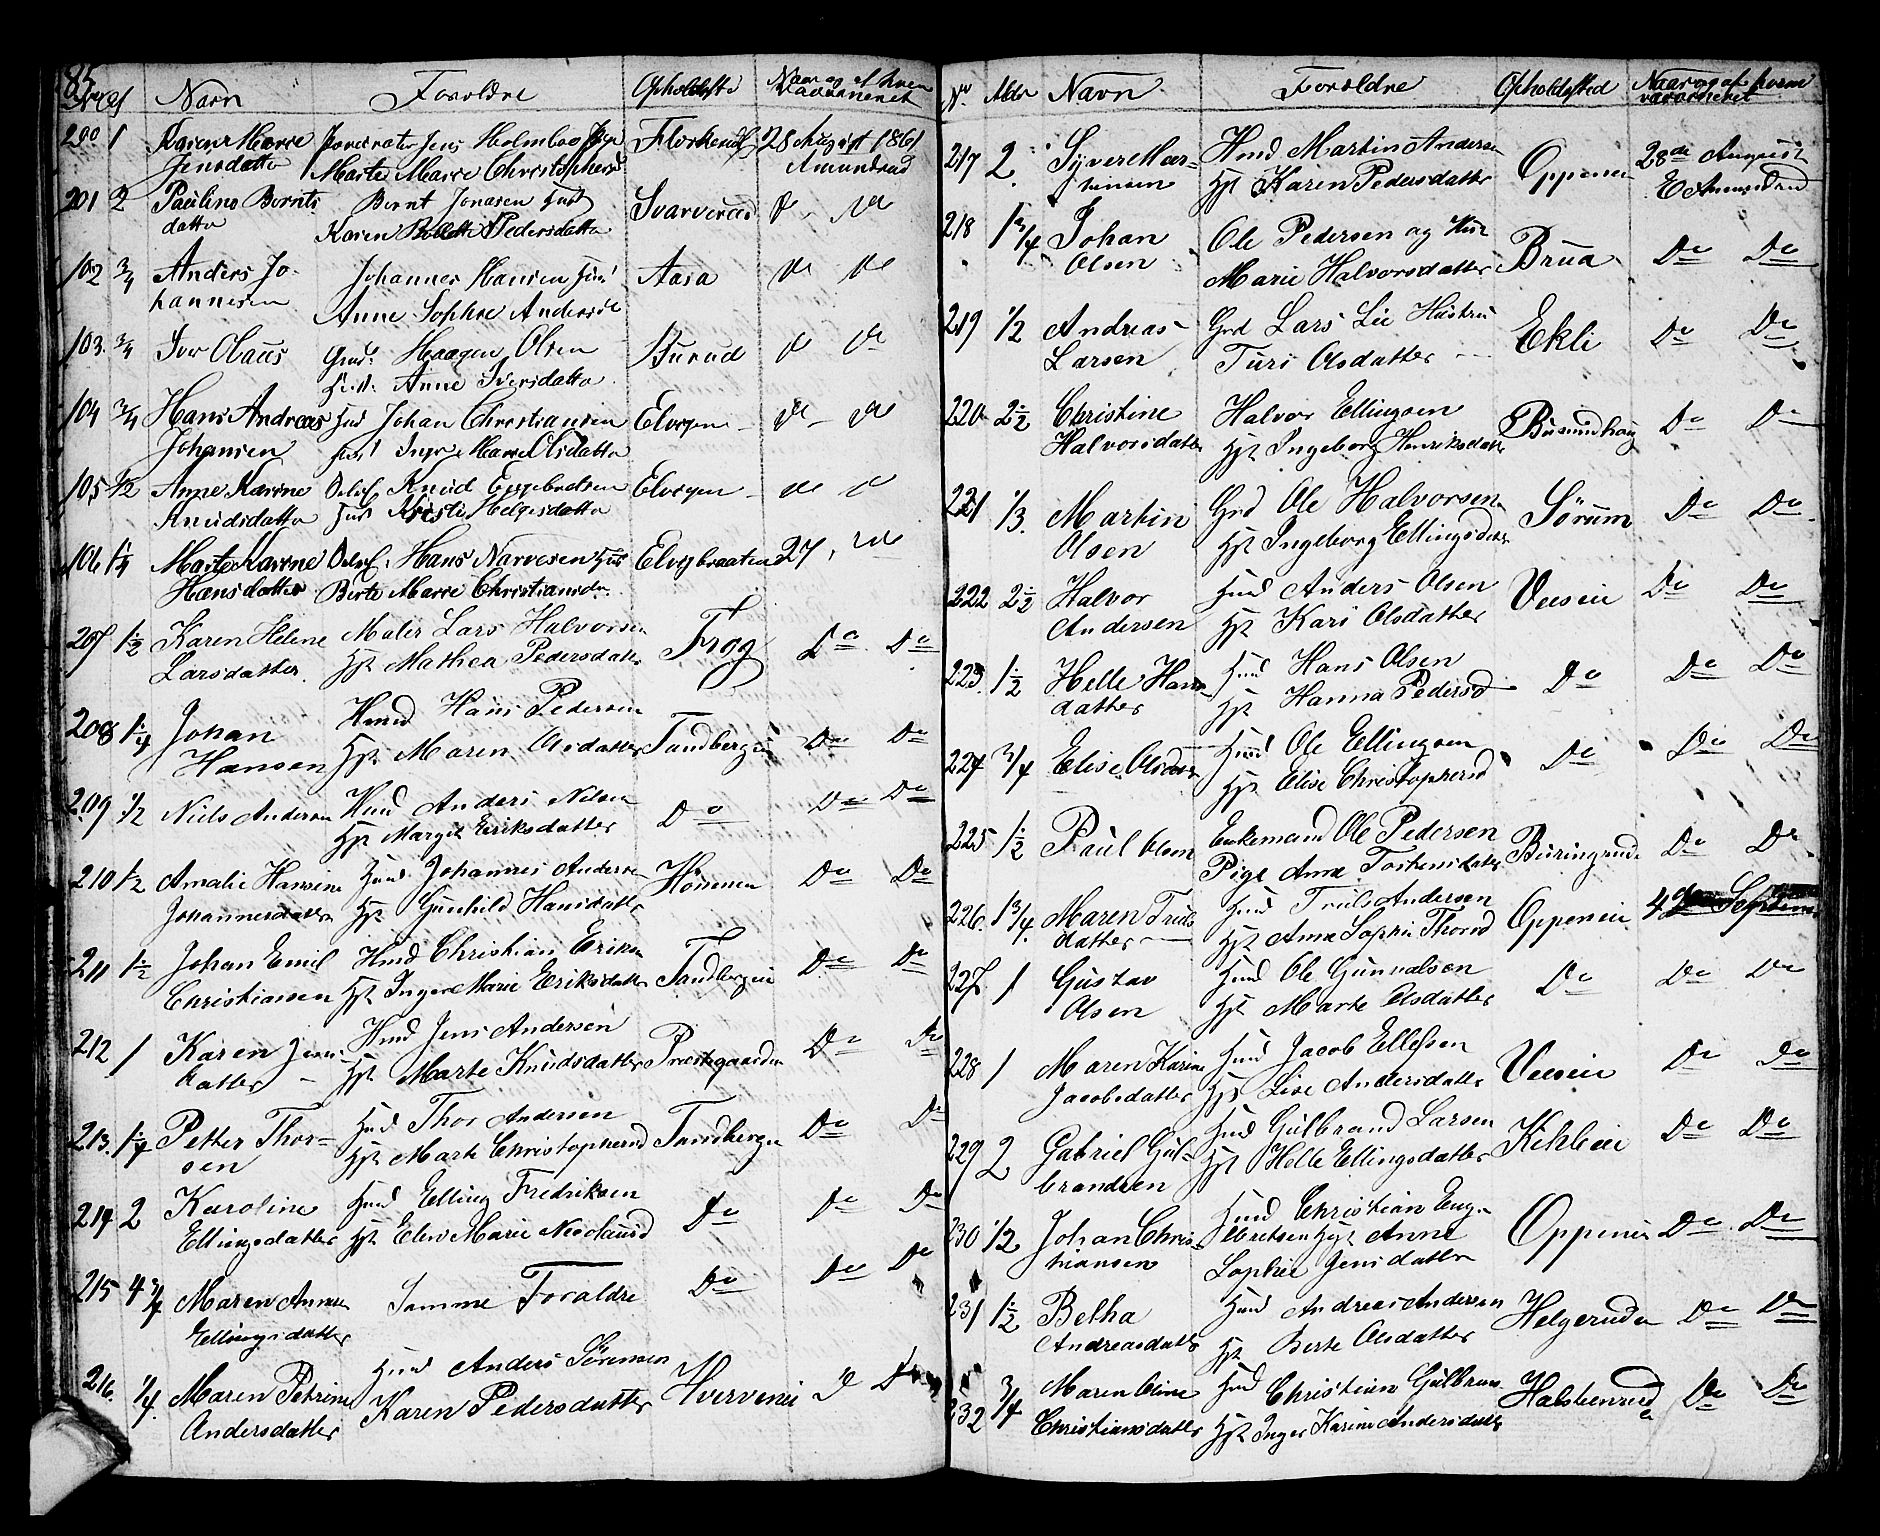 85
Nr. Navn Foreldre Opholdsste Naar og af hvem Vaccineret
200 1 Karen Marie Jens Holmboe 28 August 1861
Jensdatter Marte Marie Christophersd Amundrud
201 2 Pauline Bernts Bernt Jonasen Hust Svarverud Do Do
datter Karen Pedersdatter
102 3/4 Anders Jo- Johannes Hansen Hust Aasa Do Do
hannesen Anne Sophie Andersd
103 3/4 Iver Olaus Gmd. Haagen Olsen Burud Do Do
Hust. Anne Iversdatter
104 3/4 Hans Andreas Hmd Johan Christiansen Do Do
Johansen Hust Marie Olsdatter
105 1/2 Anne Karine Knud Engebretsen Do Do
Knudsdatter Hust Kristi Helgesdatter
106 1/4 Marte Karine Hans Narvesen Hus 27, Do
Hansdatter Berte Marie Christiansd
207 1 1/2 Karen Helene Maler Lars Halvorsen Frog Do Do
Larsdatter Hst Mathea Pedersdatter
208 1 1/4 Johan Hmd Hans Pedersen Tandbergeie Do Do
Hansen Hst Maren Olsdatter
209 1/2 Niels Andersen Hmd Anders Nilsen Do Do Do
Hst Margit Eriksdatter
210 1/2 Amalie Hansine Hmd Johannes Andersen Hønnen Do Do
Johannesdatter Hst Gunhild Hansdatter
211 1 1/2 Johan Emil Hmd Christian Eriksen Tandbergeie Do Do
Christiansen Hst Inger Marie Eriksdatter
212 1 Karen Jens- Hmd Jens Andersen Præstegaarden Do Do
datter Hst Marte Knudsdatter
213. 1 1/4 Petter Thor- Hmd Thor Andersen Tandbergeie Do Do
sen Hst Marte Christophersd
214 2 Karoline Hmd Elling Fredriksen Do Do Do
Ellingsdatter Hst Elen Marie
215 4 3/4 Maren Anne Samme Foraldre Do Do Do
Ellingsdatter
216. 1/4. Maren Petrine Hmd Anders Sørensen Hvervenei Do Do
Andersdatter Karen Pedersdatter
Nr Alder Navn Foroldre Opholdssted Naar og af hvem vaccineret
217 2 Syver Mar- Hmd Martin Andersen Oppenei 28de August
thinsen Hst Karen Pedersdatter E Amundrud
218 1 3/4 Johan Ole Pedersen og Hust Brua Do Do
Olsen Marie Halvorsdatter
219 1/2 Andreas Gmd Lars Lie Hustru Ekli Do Do
Larsen Turi Olsdatter
220 2 1/2 Christine Halvor Ellingsen Busundhaug Do Do
Halvorsdatter Hst Ingeborg Henriksdatter
221 1/3 Martin Gmd Ole Halvorsen Sørum Do Do
Olsen Hst Ingeborg Ellingsdatter
222 2 1/2 Halvor Hmd Anders Olsen Veseie Do Do
Andersen Hst Kari Olsdatter
223 1 1/2 Helle Hans- Hmd Hans Olsen Do Do Do
datter Hst Hanna Pedersd
224 3/4 Elise Olsdatter Hmd Ole Ellingsen Do Do Do
Hst Elise Christophersd
225 1 1/2 Paul Olsen Enkemand Ole Pedersen Do Do
Pige Anne Torstensdatter
226. 1 3/4. Maren Truls Hmd Truls Andersen Oppeneie 4de Septem
datter Hst Anne Sophie Thorsd
227. 1 Gustav Hmd Ole Gunnalsen Do Do Do
Olsen Hst Marte Olsdatter
228 1 Maren Karine Hmd Jacob Ellefsen Veseie Do Do
Jacobsdatter Hst Lise Andersdatter
229 2 Gabriel Gul- Hmd Gulbrand Larsen Kihleie Do Do
brandsen Hst Helle Ellingsdatter
230 1/2 Johan Chris- Hmd Christian Eng- Oppenei Do Do
tiansen ebretsen Hst Anne
Sophie Jensdatter
231 1 1/2 Betha Hmd Andreas Andersen Helgerud Do Do
Andreasdatter Hst Berte Olsdatter
232 3/4 Maren Oline Hmd Christian Gulbran Halsteinrud Do Do
Christiansdatter Hst Inger Karine Andersdatter